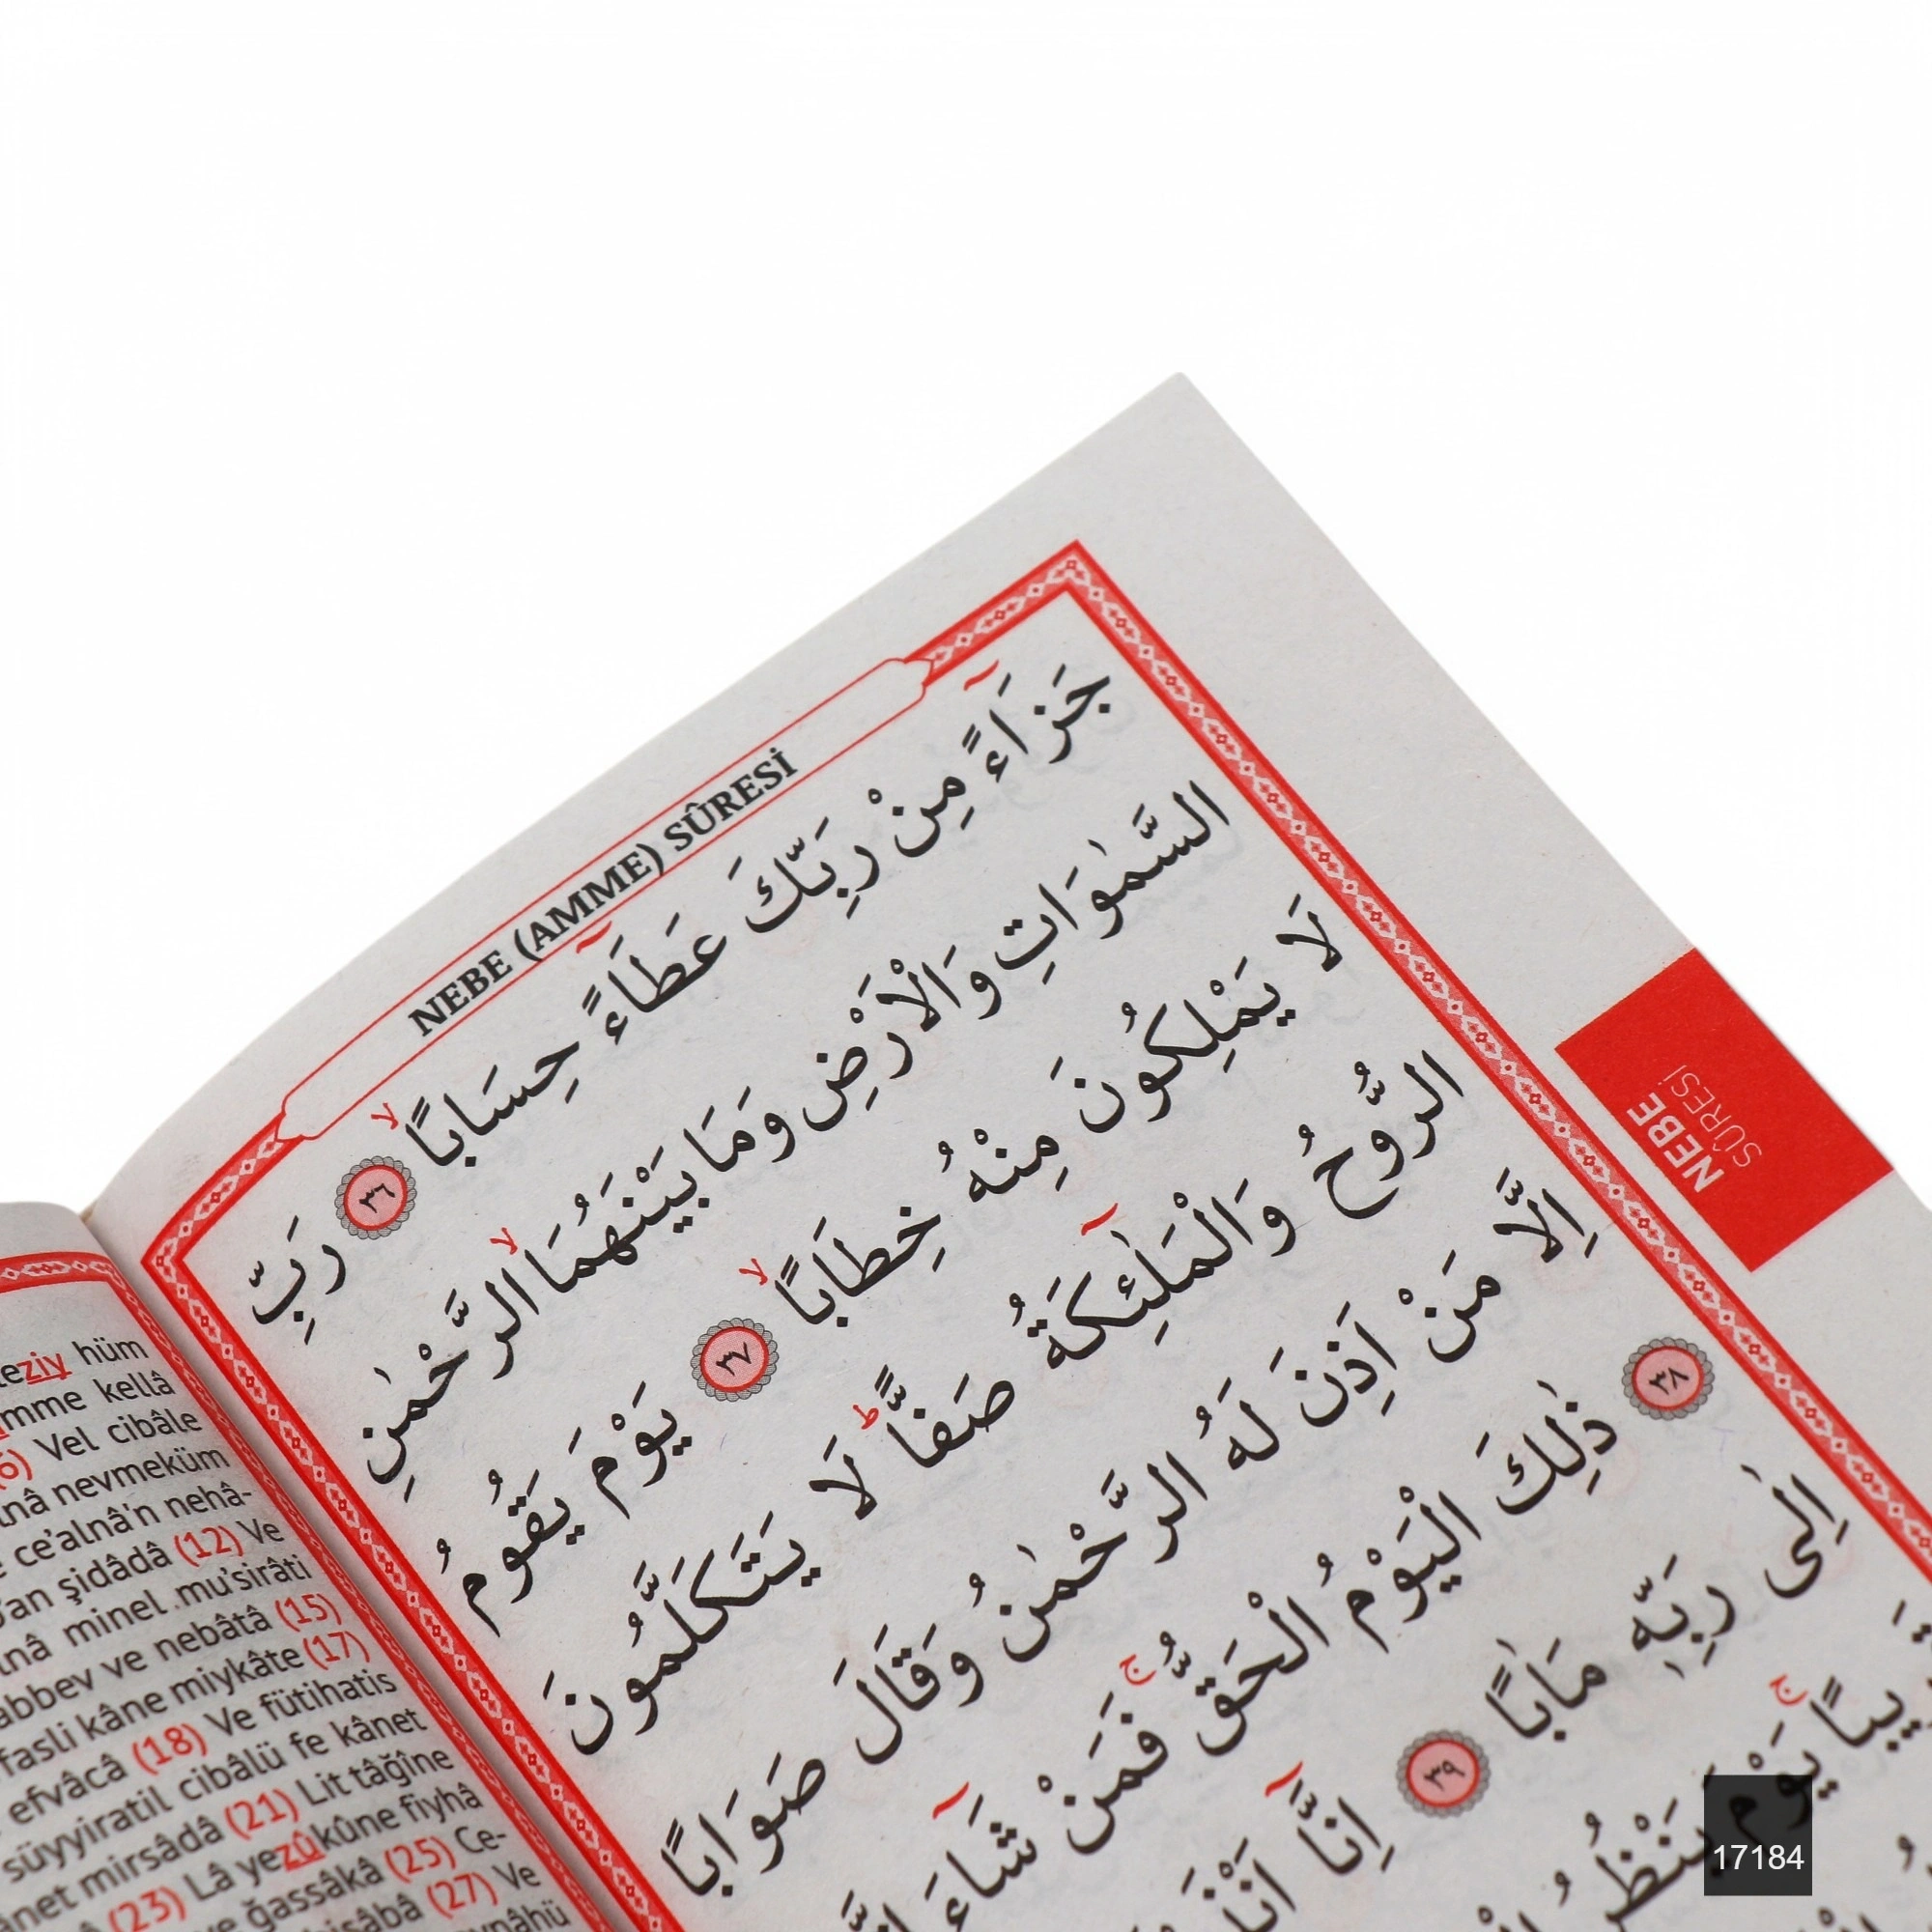 NEBE (AMME) SÛRESİ
جَزَٓاءً مِنْ رَبِّكَ عَطَٓاءً حِسَابًاۙ ﴿٣٦﴾ رَبِّ
السَّمٰوَاتِ وَالْاَرْضِ وَمَا بَيْنَهُمَاۙ الرَّحْمٰنِ
لَا يَمْلِكُونَ مِنْهُ خِطَابًاۙ ﴿٣٧﴾ يَوْمَ يَقُومُ
الرُّوحُ وَالْمَلٰٓئِكَةُ صَفًّاۜ لَا يَتَكَلَّمُونَ
اِلَّا مَنْ اَذِنَ لَهُ الرَّحْمٰنُ وَقَالَ صَوَابًا
﴿٣٨﴾ ذٰلِكَ الْيَوْمُ الْحَقُّۚ فَمَنْ شَٓاءَ
اِلٰى رَبِّهٖ مَاٰبًا ﴿٣٩﴾ اِنَّٓا
يَوْمَ يَنْظُرُ
NEBE
SÛRESİ
ziy hüm
mme kellâ
Vel cibâle
nâ nevmeküm
ce'alnâ'n nehâ-
an şidâdâ (12) Ve
nâ minel mu'sirâti
abbev ve nebâtâ (15)
fasli kâne miykâte (17)
efvâcâ (18) Ve fütihatis
süyyiratil cibâlü fe kânet
net mirsâdâ (21) Lit tâğîne
(23) Lâ yezûkûne fiyhâ
ve ğassâkâ (25) Ce-
hisâbâ (27) Ve
17184